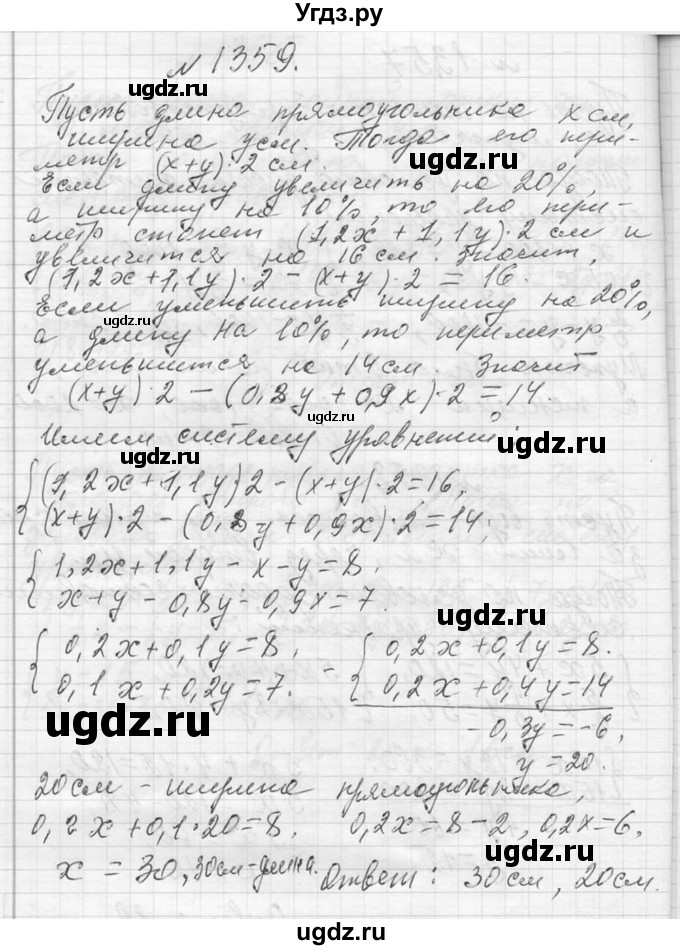 Угдз.ру
№ 1359.
Пусть длина прямоугольника x см,
ugdz.ru ugdz.ru
ширина y см. Тогда его пери-
метр (x+y)·2 см.
ugdz.ru
Если длину увеличить на 20%,
а ширину на 10%, то его пери-
метр станет (1,2x + 1,1y)·2 см и
увеличится на 16 см. Значит,
(1,2x+1,1y)·2 - (x+y)·2 = 16.
ugdz.ru
Если уменьшить ширину на 20%,
а длину на 10%, то периметр
ugdz.ru
уменьшится на 14 см. Значит
(x+y)·2 - (0,8y + 0,9x)·2 = 14.
ugdz.ru
Имеем систему уравнений:
ugdz.ru
{(1,2x+1,1y)2 - (x+y)·2=16,
(x+y)·2 - (0,8y+0,9x)·2=14;
ugdz.ru
{1,2x+1,1y - x - y = 8,
x+y - 0,8y - 0,9x = 7.
ugdz.ru
{0,2x+0,1y=8, - {0,2x+0,1y=8.
0,1x+0,2y=7. 0,2x+0,4y=14
ugdz.ru
-0,3y=-6,
ugdz.ru
y=20.
20см - ширина прямоугольника,
0,2x+0,1·20=8, 0,2x=8-2, 0,2x=6,
ugdz.ru
x = 30, 30см-длина. Ответ: 30см, 20см.
ugdz.ru